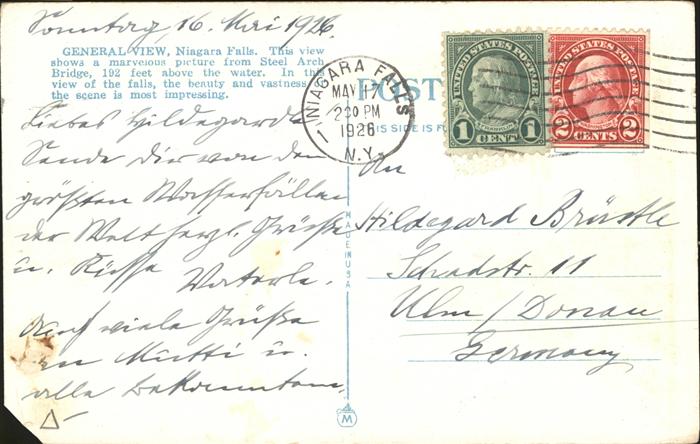 Sonntag, 16. Mai 1926.
GENERAL VIEW, Niagara Falls. This view
shows a marvelous picture from Steel Arch
Bridge, 192 feet above the water. In this
view of the falls, the beauty and vastness of
the scene is most impressing.
Liebes Hildegardle
Sende Dir von den
größten Wasserfällen
der Welt herzl. Grüße
u. Küsse Vaterle.
Auch viele Grüße
an Mutti u.
alle Bekannten.
NIAGARA FALLS
MAY 17
2 30 PM
1926
N.Y.
POST
THIS SIDE IS F
UNITED STATES POSTAGE
FRANKLIN
1 CENT 1
UNITED STATES POSTAGE
WASHINGTON
2 CENTS 2
An
Hildegard Brüstle
Schadstr. 11
Ulm / Donau
Germany
MADE IN USA
M